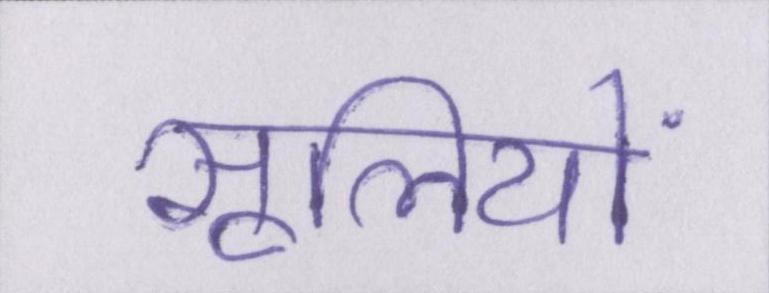 सूलियों